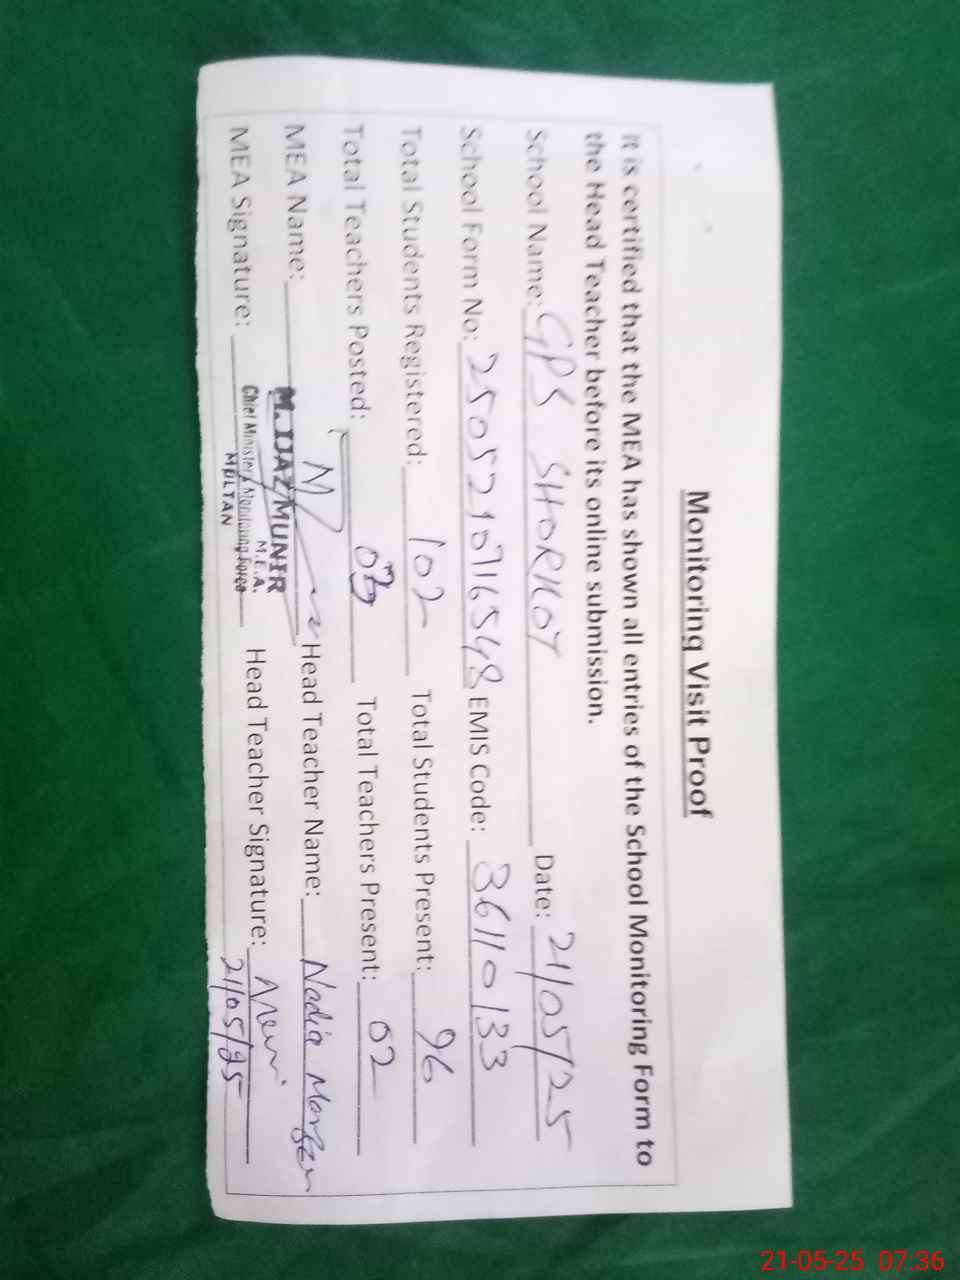 Monitoring Visit Proof
It is certified that the MEA has shown all entries of the School Monitoring Form to
the Head Teacher before its online submission.
School Name: GPS SHORKOT Date: 21/05/25
School Form No: 2505210716548 EMIS Code: 36110133
Total Students Registered: 102 Total Students Present: 96
Total Teachers Posted: Total Teachers Present: 02
MEA Name: M. IJAZ MUNIR Head Teacher Name: Nadia
M.E.A.
MEA Signature: Chief Minister's Monitoring Force Head Teacher Signature:
MULTAN
21/05/25
21-05-25 07:36